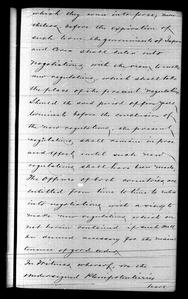 which they come into force; nor
unless, before the expiration of
such term, the governments of Japan
and Corea shall enter into
negotiations, with the view to make
new regulations, which shall take
the place of the present regulations.
Should the said period of five years
terminate before the conclusion of
the new regulations, the present
regulations, shall remain in force
and effect, until such new
regulations shall have been made.
The officers of both countries are
entitled from time to time to enter
into negotiation with a view to
made new regulations which are
not herein contained if such shall
be deemed necessary for the main-
tenance of good order.
In Witness whereof, we the
undersigned Plenipotentiaries
have